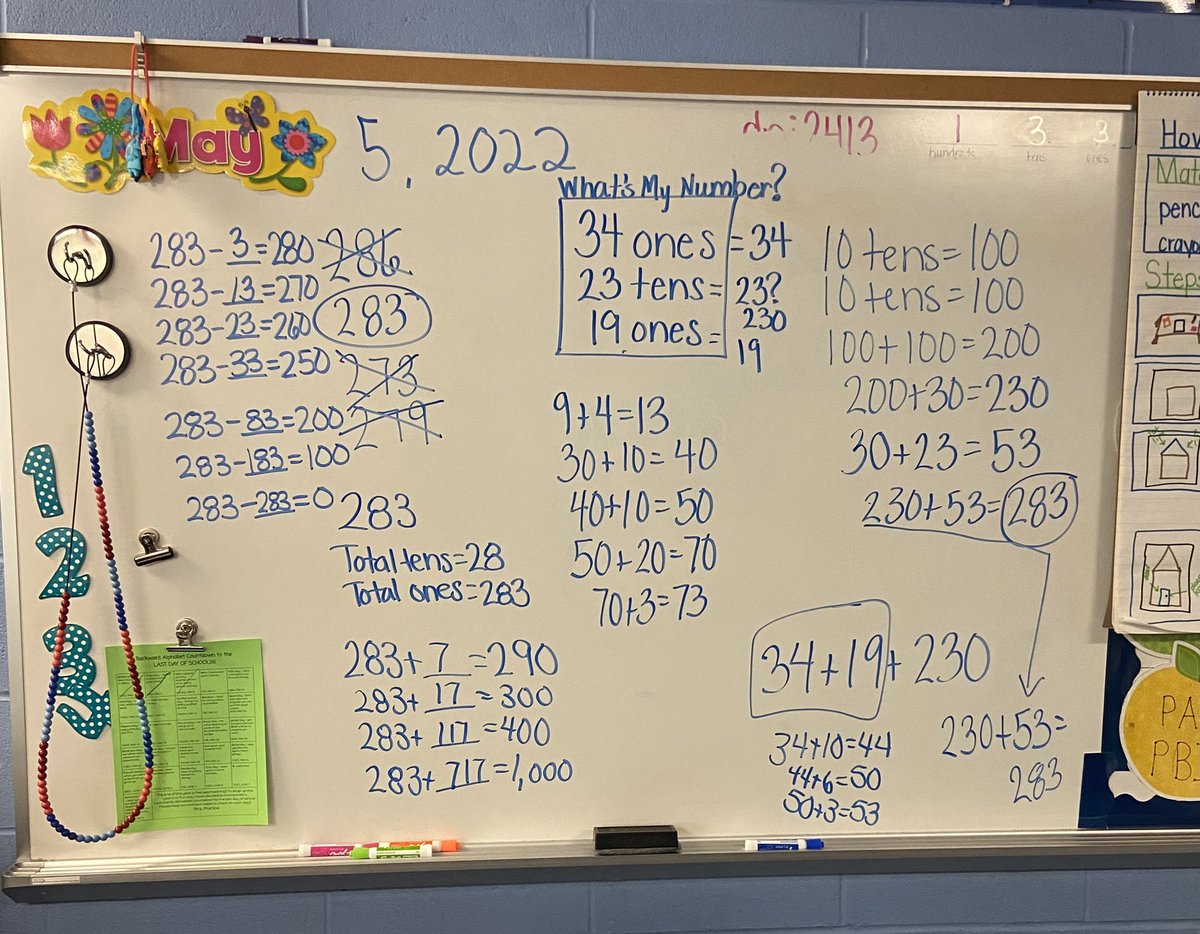 May 5, 2022
2413
1 3 3
hundreds tens ones
283-3=280
283-13=270
283-23=260
283-33=250
283-83=200
283-183=100
283-283=0
286
283
273
279
283
Total tens=28
Total ones=283
283+7=290
283+17=300
283+117=400
283+717=1,000
What's My Number?
34 ones=34
23 tens=23?
230
19 ones=19
9+4=13
30+10=40
40+10=50
50+20=70
70+3=73
10 tens=100
10 tens=100
100+100=200
200+30=230
30+23=53
230+53=283
34+19+230
34+10=44
44+6=50
50+3=53
230+53=
283
1
2
3
Backward Alphabet Countdown to the
LAST DAY OF SCHOOL!!!
How
Mat
penc
crayo
Steps
PA
PB